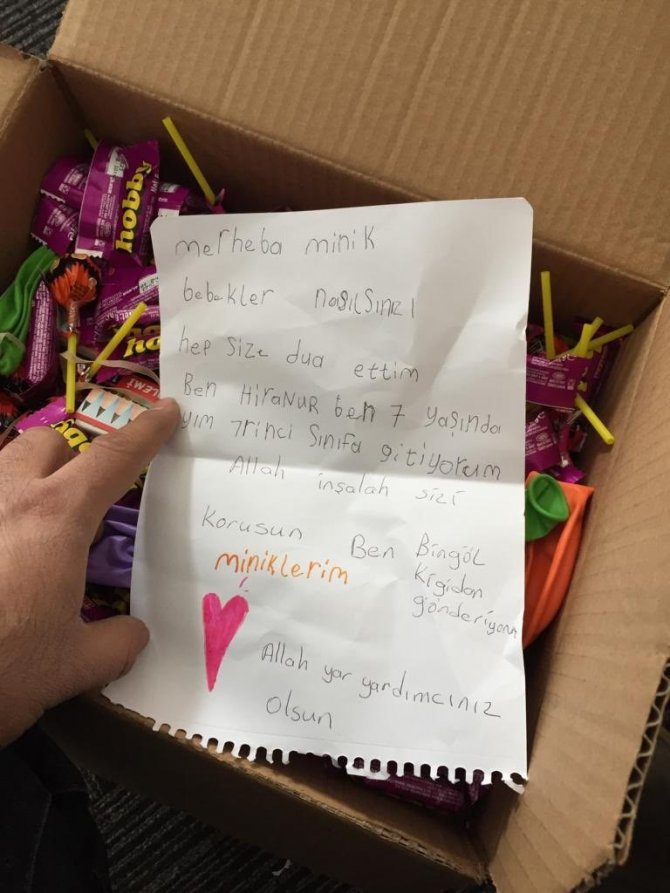 merheba minik
bebekler nasılsınızı
hep size dua ettim
Ben HiraNUR ben 7 yaşında
yım 7rinci Sınıfa gitiyorum
Allah inşalah sizi
Korusun
miniklerim
Ben Bingöl
Kigidan
gönderiyorum
Allah yar yardımcınız
Olsun
hobby